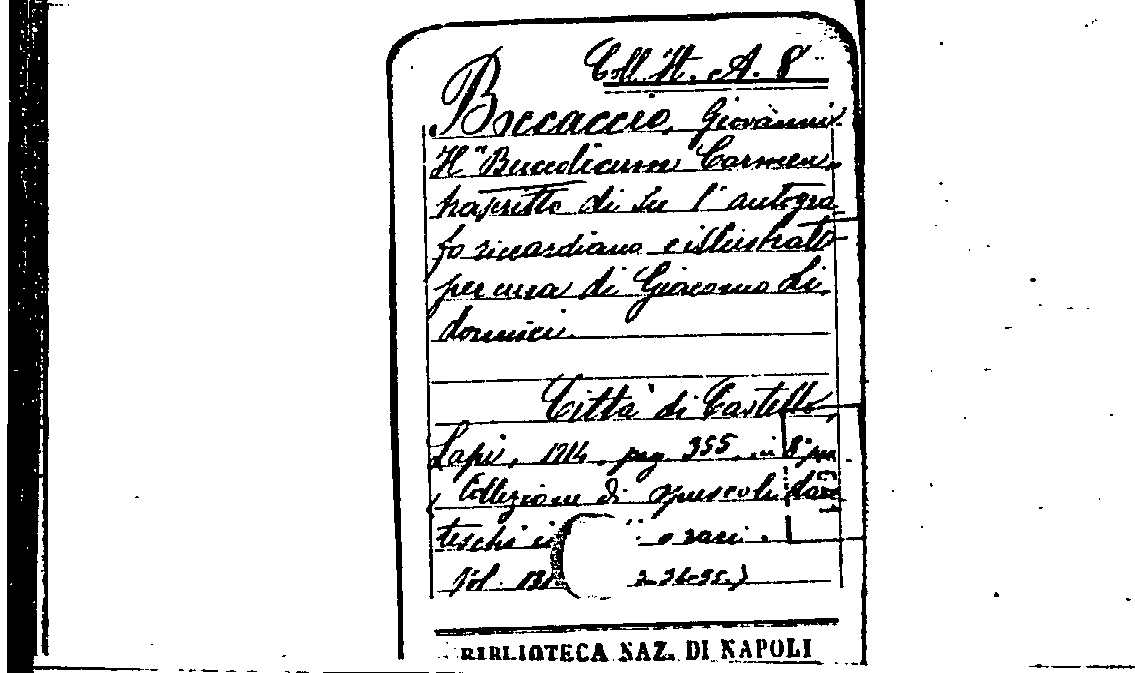 Coll. It. A. 8
Boccaccio, Giovanni.
Il "Buccolicum Carmen„
trascritto di su l'autogra
fo riccardiano e illustrato
per cura di Giacomo Li
donnici.
Città di Castello,
Lapi, 1914. pag 355. in 8° 
(Collezione di opuscoli dan
teschi o rari.
Vol. 131
BIBLIOTECA NAZ. DI NAPOLI